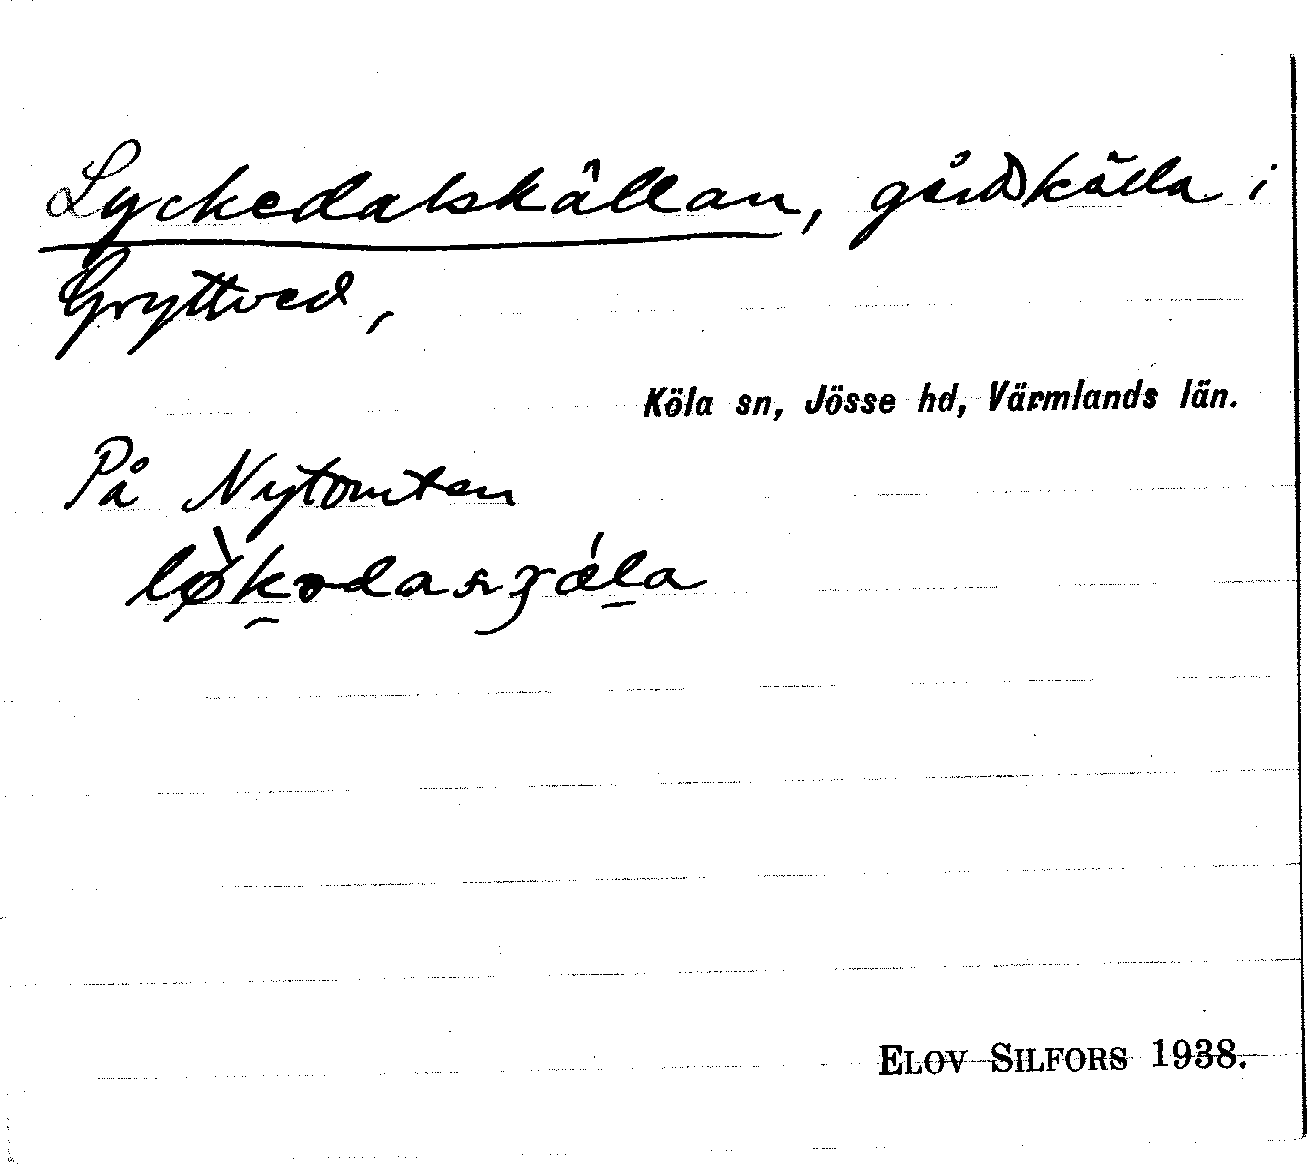 Lyckedalskällan, gårdskälla i
Gryttved,
Köla sn, Jösse hd, Värmlands län.
På Nytomten
ELOV SILFORS 1938.